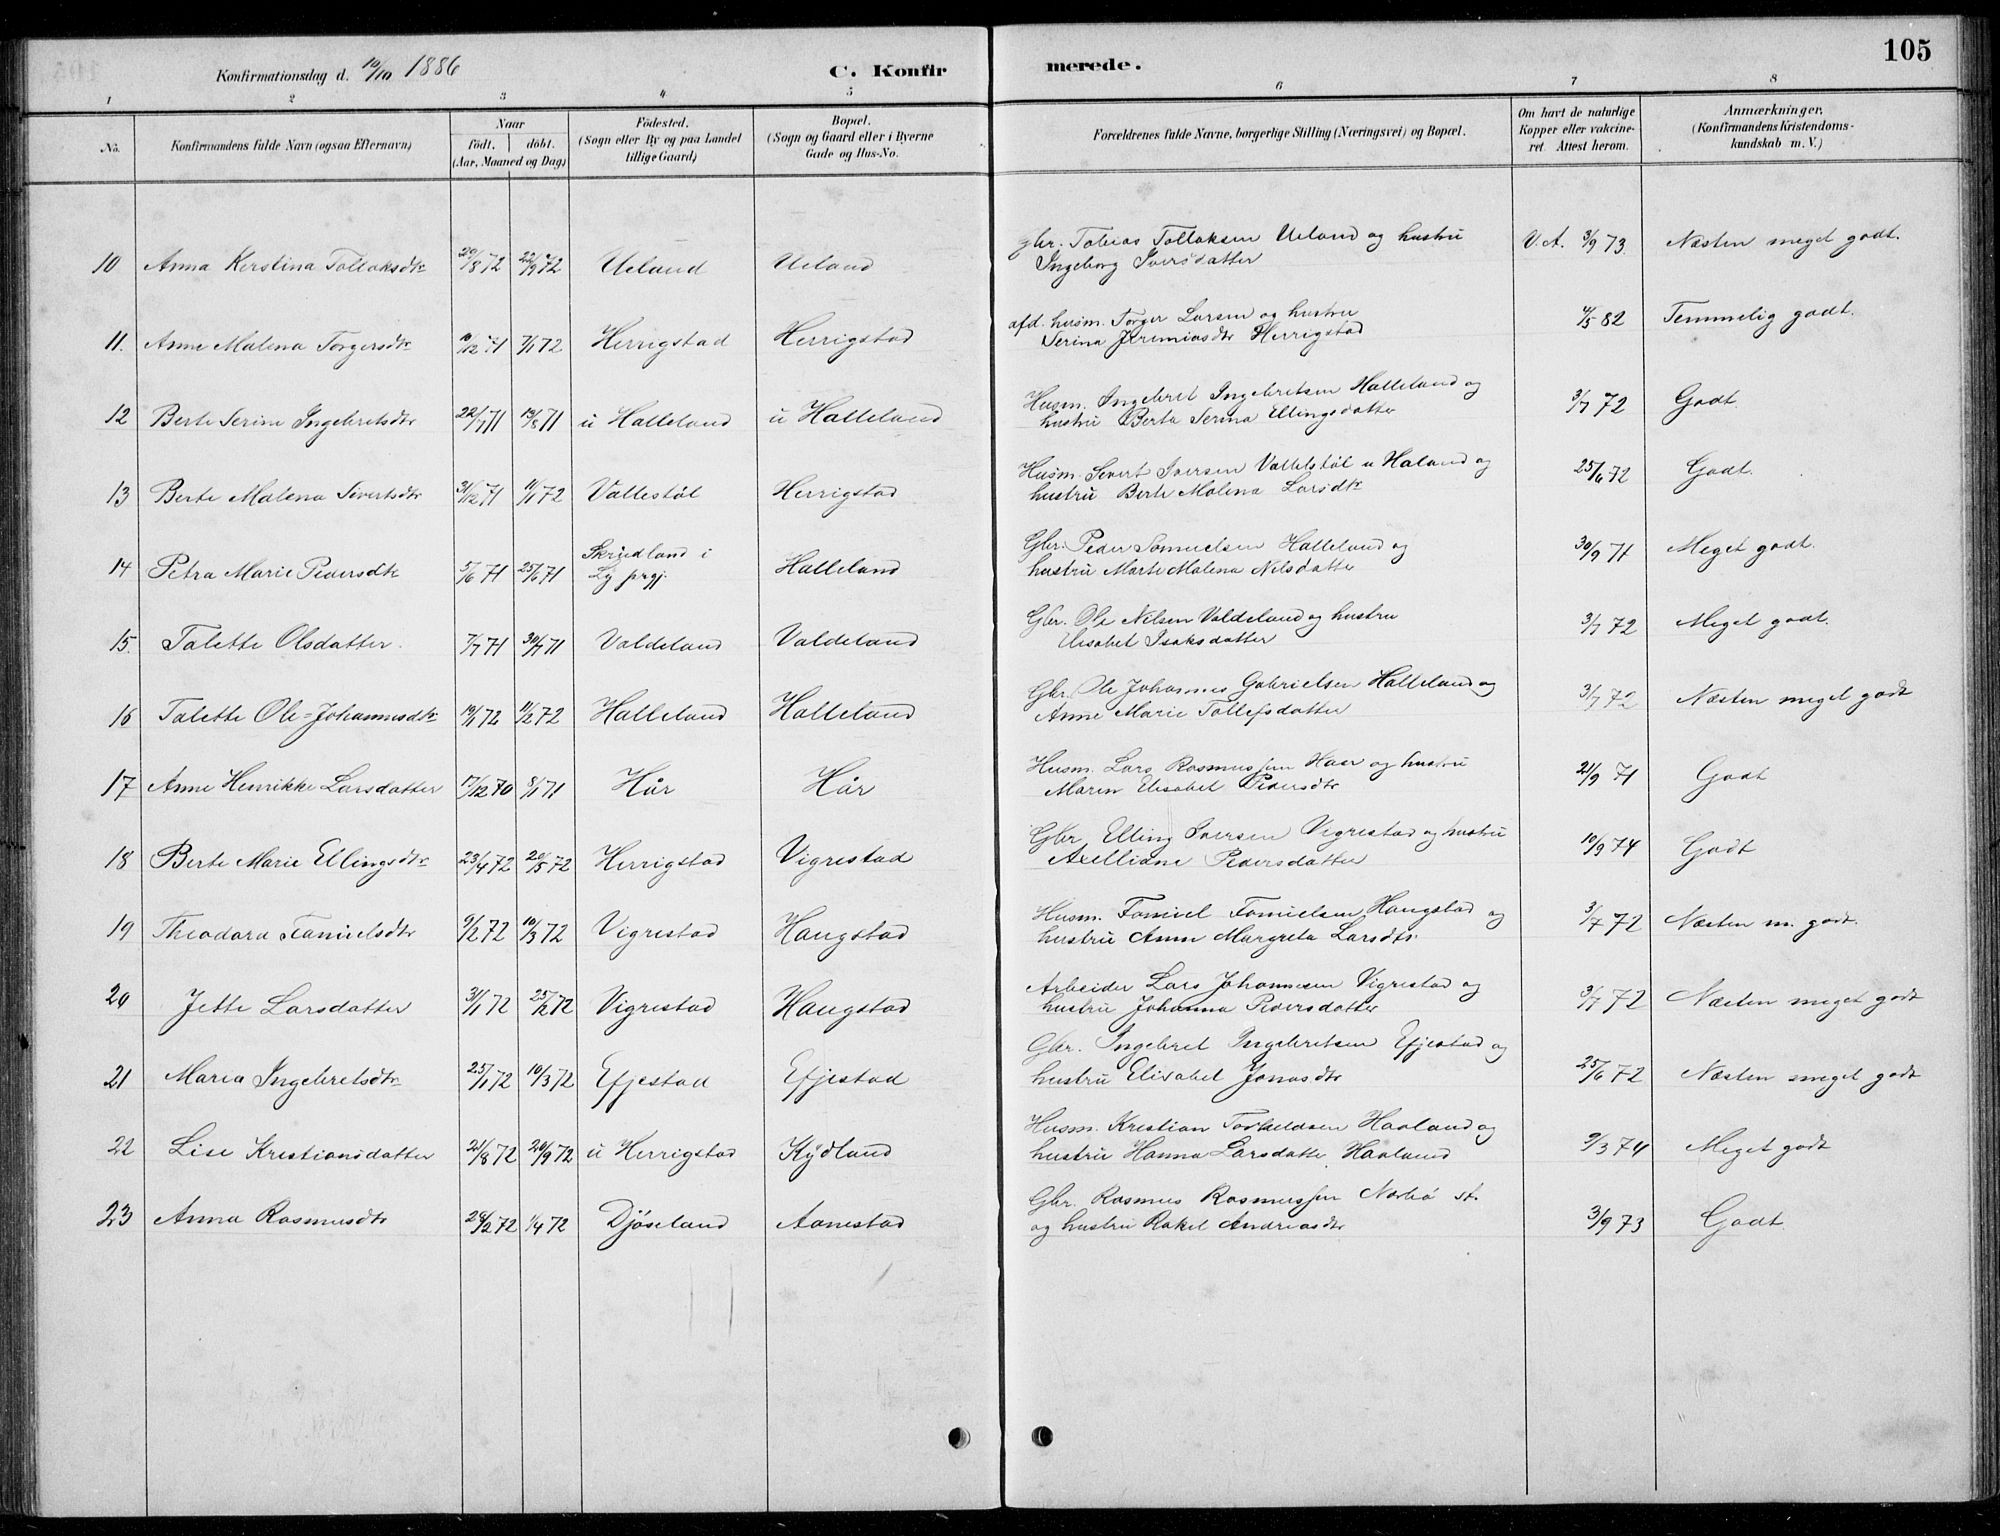 105
Konfirmationsdag d. 10/10 1886 C. Konfirmerede.
1 2 3 4 5 6 7 8
No. Konfirmandens fulde Navn (ogsaa Efternavn) Naar født. døbt. (Aar, Maaned og Dag) Fødested. (Sogn eller By og paa Landet tillige Gaard) Bopæl. (Sogn og Gaard eller i Byerne Gade og Hus-No. Forældrenes fulde Navne, borgerlige Stilling (Næringsvei) og Bopæl. Om havt de naturlige Kopper eller vakcineret. Attest herom. Anmærkninger. (Konfirmandens Kristendomskundskab m. V.)
10 Anna Kerstina Tollaksdtr 29/8 72 22/9 72 Ueland Ueland gbr. Tobias Tollaksen Ueland og hustru V.A. 3/9 73. Næsten meget godt.
Ingeborg Iversdatter
11. Anne Malena Torgersdtr 10/12 71 7/1 72 Herrigstad Herrigstad afd. husm. Torger Larsen og hustru 4/5 82 Temmelig godt.
Serina Jeremiasdtr Herrigstad
12 Berte Serine Ingebretsdtr 22/7 71 13/8 71 u Halleland u Halleland Husm. Ingebret Ingebretsen Halleland og 3/7 72 Godt.
hustru Berta Serina Ellingsdatter
13 Berte Malena Sivertsdtr 31/12 71 11/1 72 Vallestøl Herrigstad Husm. Sivert Iversen Vallestøl u Haland og 25/6 72 Godt.
hustru Berte Malena Larsdtr
14 Petra Marie Pedersdtr 5/6 71 25/6 71 Skrudland i Ly prgj. Halleland Gbr. Peder Samuelsen Halleland og 30/9 71 Meget godt.
hustru Marte Malena Nilsdatter
15. Talette Olsdatter. 7/7 71 30/7 71 Valdeland Valdeland Gbr. Ole Nilsen Valdeland og hustru 3/7 72 Meget godt.
Elisabet Isaksdatter
16 Talette Ole-Johannesdtr 19/1 72 11/2 72 Halleland Halleland Gbr. Ole Johannes Gabrielsen Halleland og 3/7 72 Næsten meget godt
Anne Marie Tollefsdatter
17 Anne Henrikke Larsdatter 17/12 70 8/1 71 Hår Hår Husm. Lars Rasmussen Haar og hustru 21/9 71 Godt
Maren Elisabet Pedersdtr
18 Berte Marie Ellingsdtr 23/4 72 20/5 72 Herrigstad Vigrestad Gbr Elling Iversen Vigrestad og hustru 10/9 74 Godt
Axelliane Pedersdatter
19 Theodora Samuelsdtr 9/2 72 10/3 72 Vigrestad Haugstad Husm. Samuel Samuelsen Haugstad og 3/7 72 Næsten m. godt.
hustru Anne Margreta Larsdtr.
20 Jette Larsdatter 31/1 72 25/2 72 Vigrestad Haugstad Arbeider Lars Johannesen Vigrestad og 3/7 72 Næsten meget godt
hustru Johanna Pedersdatter
21 Maria Ingebretsdtr 25/1 72 10/3 72 Efjestad Efjestad Gbr. Ingebret Ingebretsen Efjestad og 25/6 72 Næsten meget godt
hustru Elisabet Jonasdtr
22 Lise Kristiansdatter 21/8 72 20/9 72 u Herrigstad Kydland Husm. Kristian Torkeldsen Haaland og 9/3 74 Meget godt
hustru Hanna Larsdatter Haaland
23 Anna Rasmusdtr 28/2 72 1/4 72 Djøseland Aanestad Gbr. Rasmus Rasmussen Nærbø st. 3/9 73 Godt.
og hustru Rakel Andreasdtr